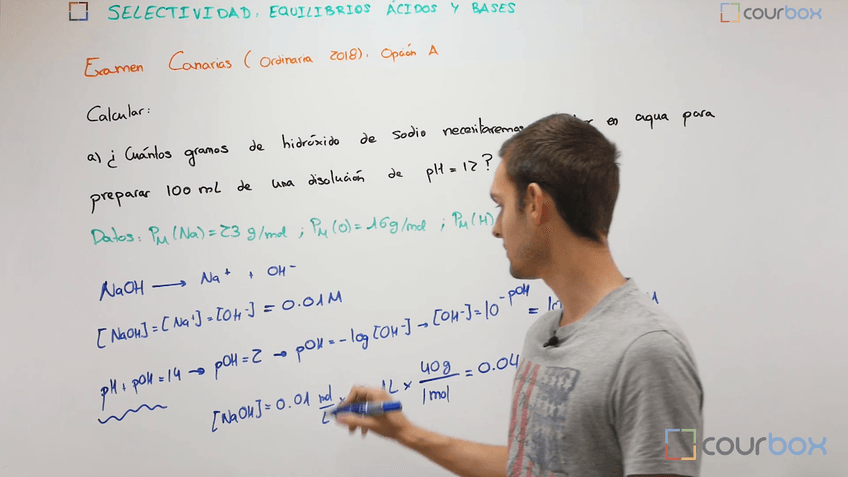 SELECTIVIDAD: EQUILIBRIOS ÁCIDOS Y BASES
courbox
Examen Canarias (Ordinaria 2018). Opción A
Calcular:
a) ¿Cuántos gramos de hidróxido de sodio necesitaremos en agua para
preparar 100 mL de una disolución de pH = 12?
Datos: PM(Na) = 23 g/mol ; PM(O) = 16 g/mol ; PM(H)
NaOH → Na⁺ + OH⁻
[NaOH] = [Na⁺] = [OH⁻] = 0.01 M
pH + pOH = 14 → pOH = 2 → pOH = -log [OH⁻] → [OH⁻] = 10^-pOH =
[NaOH] = 0.01 mol/L × 1L × 40g/1mol = 0.04
courbox